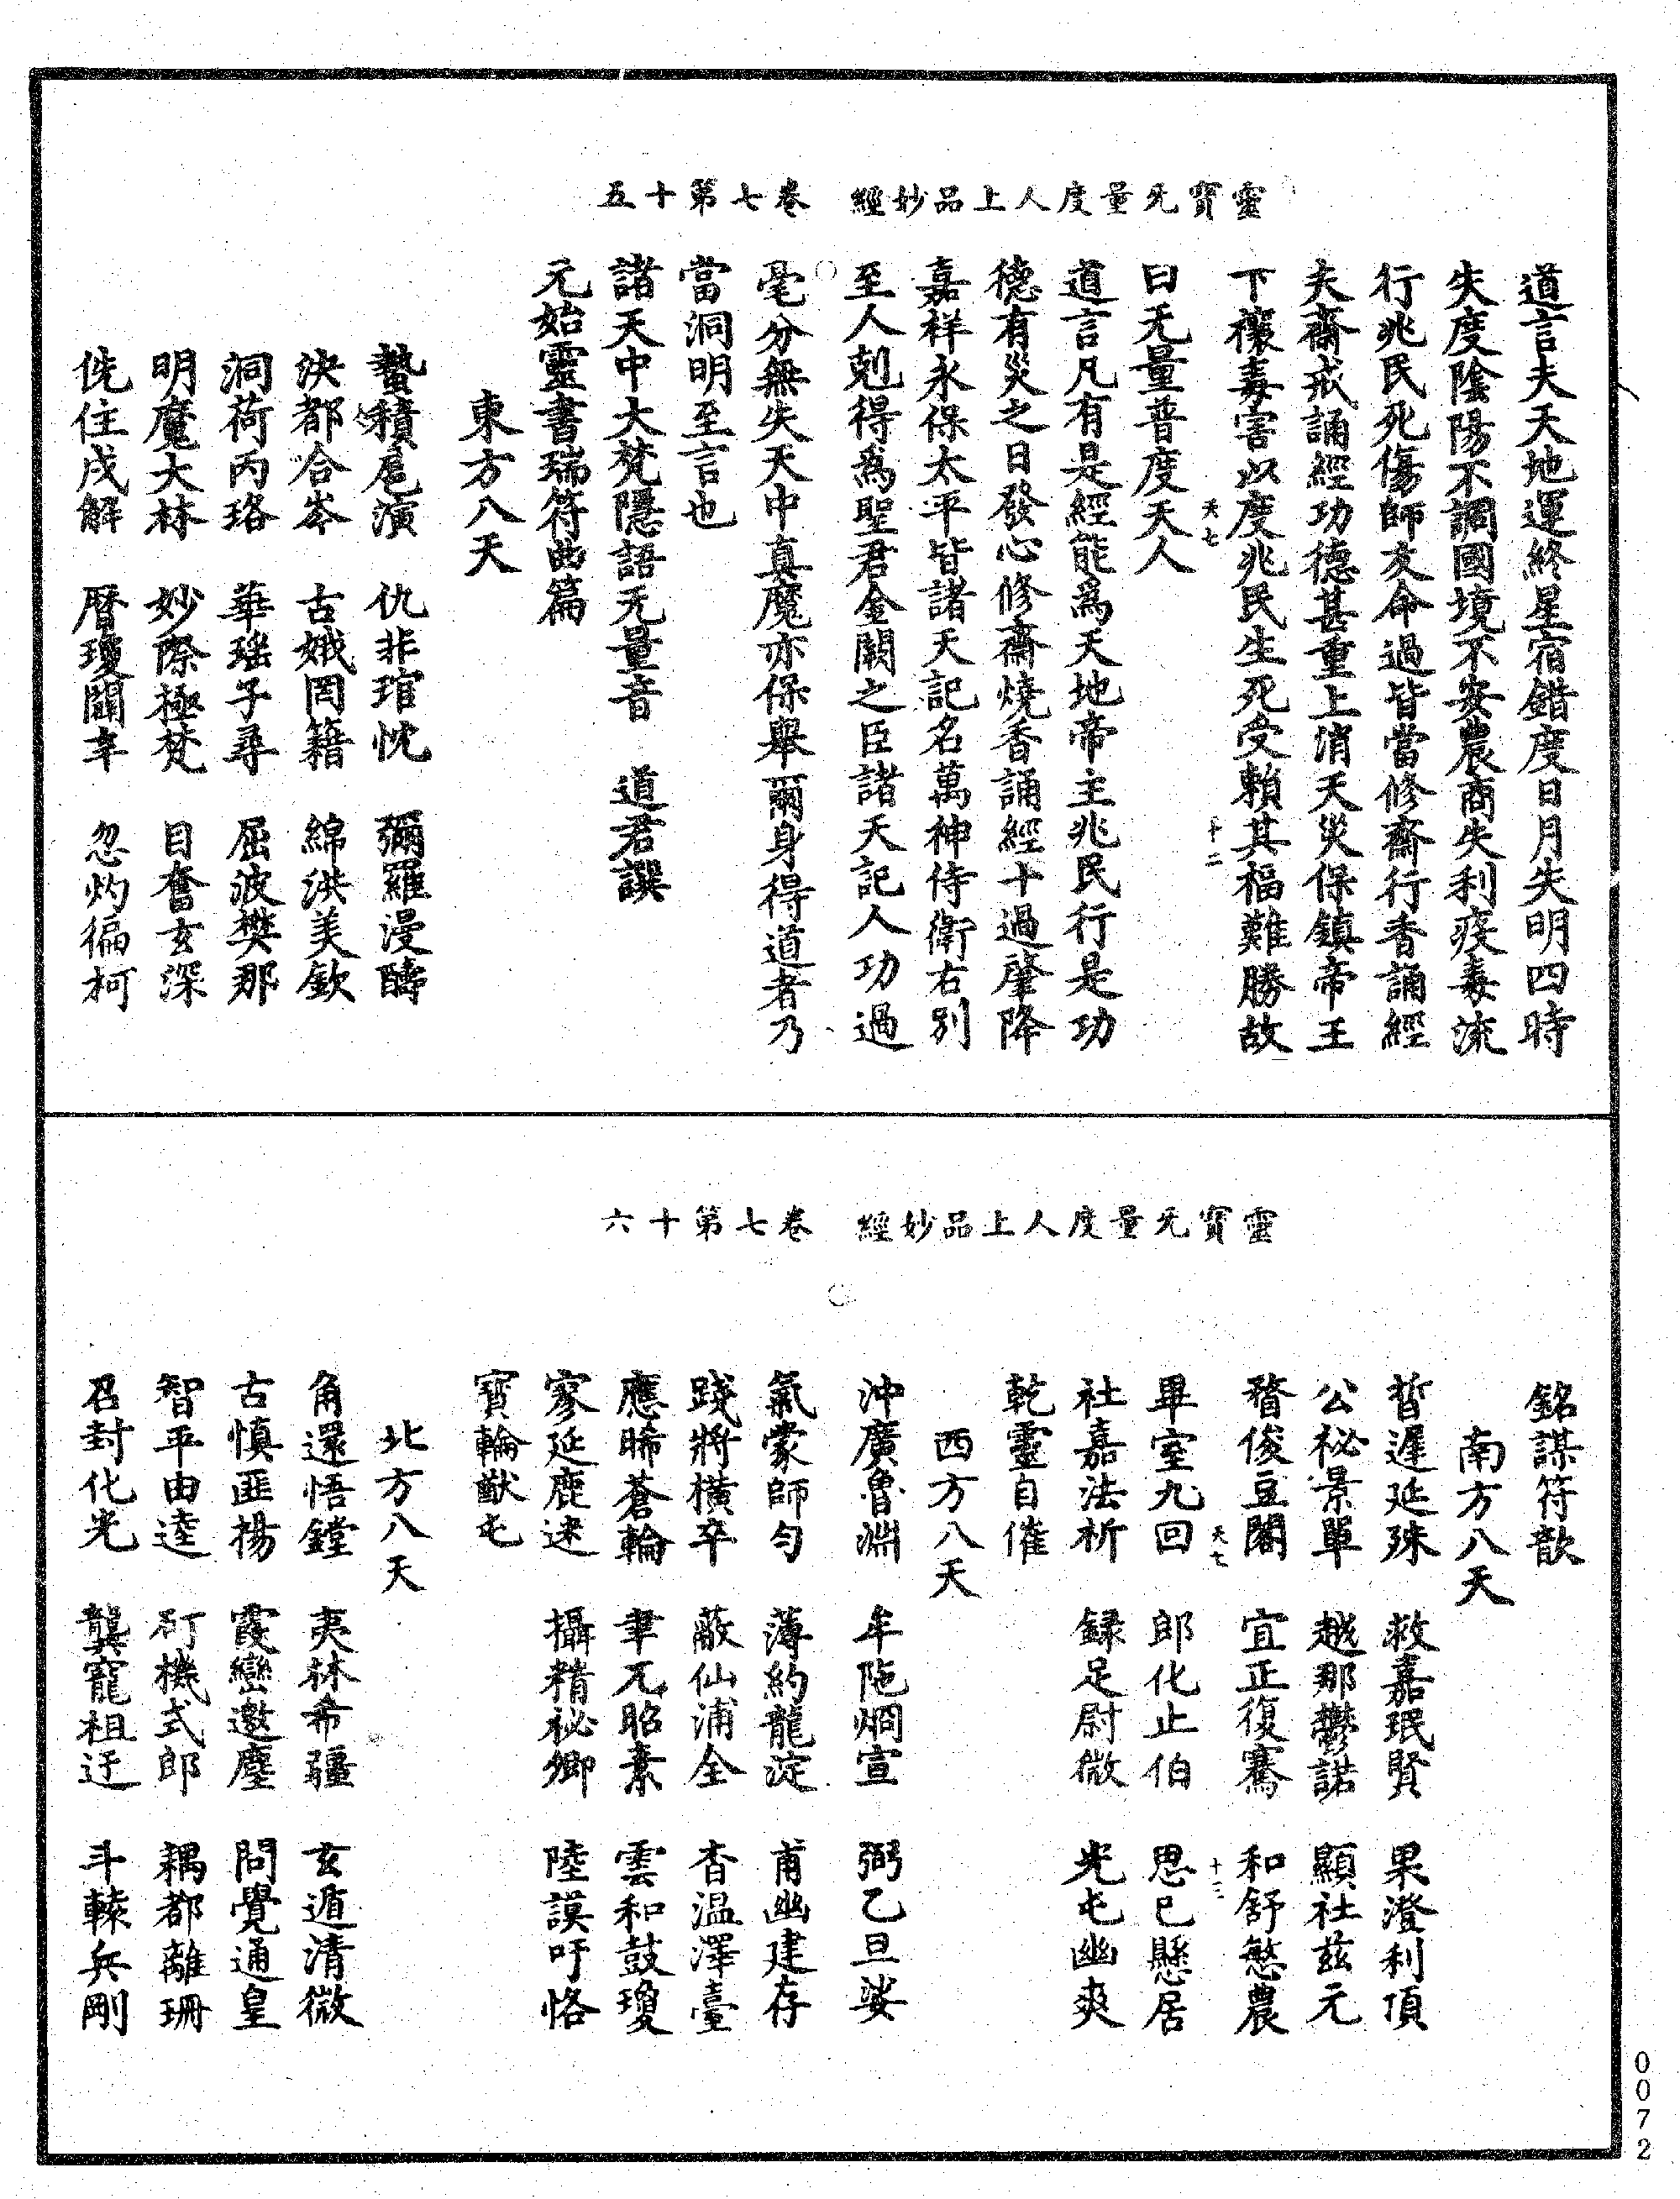 靈寶无量度人上品妙經　卷七第十五
道言夫天地運終星宿錯度日月失明四時
失度陰陽不調國境不安農商失利疫毒流
行兆民死傷師友命過皆當修齋行香誦經
夫齋戒誦經功德甚重上消天災保鎮帝王
下禳毒害以度兆民生死受賴其福難勝故
天七　十二
曰无量普度天人
道言凡有是經能爲天地帝主兆民行是功
德有災之日發心修齋燒香誦經十過肇降
嘉祥永保太平皆諸天記名萬神侍衛右別
至人剋得爲聖君金闕之臣諸天記人功過
毫分無失天中真魔亦保舉爾身得道者乃
當洞明至言也
諸天中大梵隱語无量音　道君譔
元始靈書瑞符曲篇
東方八天
蟄積扈演　仇非琯忱　彌羅漫疇
泱都合岑　古娥罔籍　綿洪美欽
洞荷丙珞　華瑤子尋　屈波樊那
明魔大林　妙際極梵　目奮玄深
侁住戌解　曆瓊闢羊　忽灼徧柯
靈寶无量度人上品妙經　卷七第十六
銘謀符歆
南方八天
晢遲延殊　救嘉珉賢　果澄利頂
公祕景單　越那鬱諾　顯社茲元
稓俊豆闍　宜正復騫　和舒慜農
天七　十三
畢室九回　郎化止伯　思巳懸居
社嘉法析　録足尉微　光屯幽爽
乾靈自催
西方八天
沖廣魯淵　牟陁烱宣　弼乙旦娑
氣蒙師勻　薄約龍淀　甫幽建存
踐將橫卒　蔽仙浦全　杳温澤臺
應晞蒼輪　聿兀昭素　雲和鼓瓊
寥延鹿逑　攝精祕卿　陸謨吁恪
寶輪猷屯
北方八天
角還悟鏜　夷林希疆　玄遁清微
古慎匪揚　霞巒邀塵　問覺通皇
智平由逵　矴機式郎　耦都離珊
召封化光　龔寵祖迂　斗轅兵剛
0072